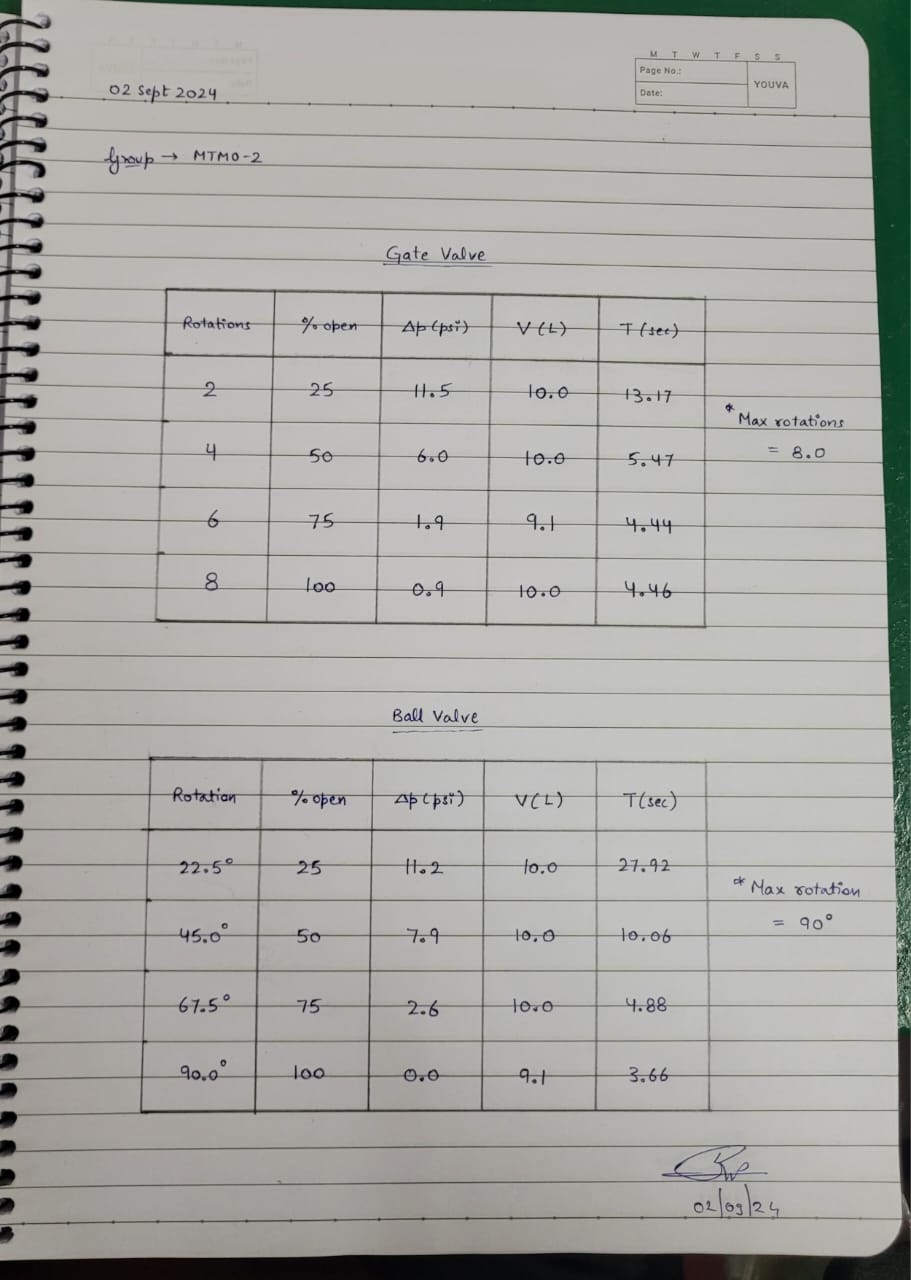 M T W T F S S
Page No.:
YOUVA
Date:
02 Sept 2024
Group → MTMO-2
Gate Valve
Rotations % open Δp (psi) V (L) T (sec)
2 25 11.5 10.0 13.17
4 50 6.0 10.0 5.47
6 75 1.9 9.1 4.44
8 100 0.9 10.0 4.46
* Max rotations
= 8.0
Ball Valve
Rotation % open Δp (psi) V(L) T(sec)
22.5° 25 11.2 10.0 27.92
45.0° 50 7.9 10.0 10.06
67.5° 75 2.6 10.0 4.88
90.0° 100 0.0 9.1 3.66
* Max rotation
= 90°
02/09/24